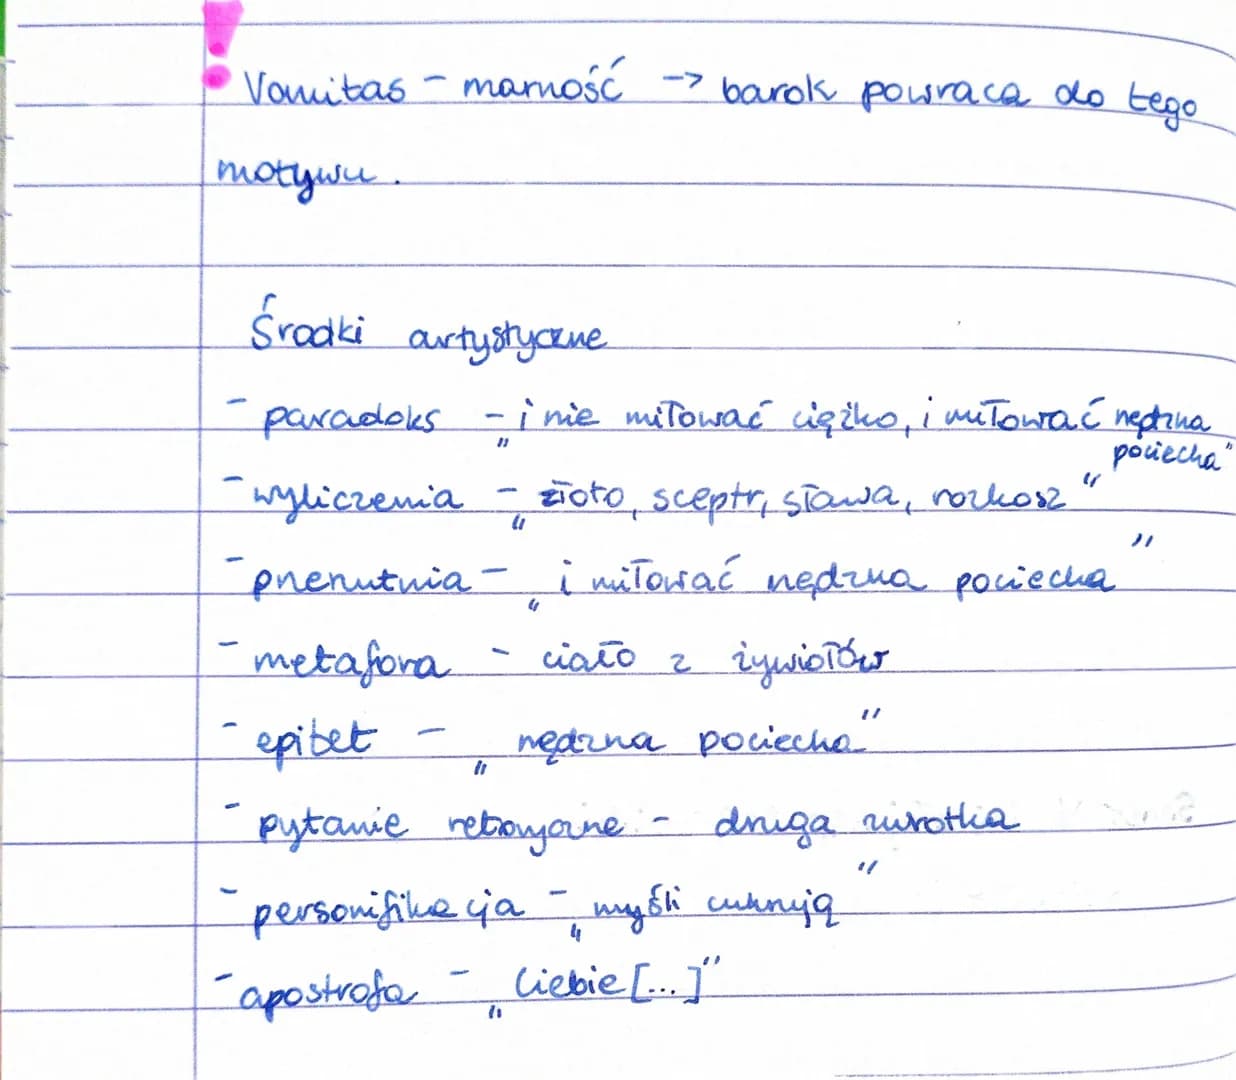 ! Vanitas - marność -> barok powraca do tego
motywu.
Środki artystyczne
- paradoks - „i nie miłować ciężko, i miłować nędzna
pociecha"
- wyliczenia - „złoto, sceptr, sława, rozkosz"
- przerzutnia - „i miłować nędzna pociecha"
- metafora - ciało z żywiołów
- epitet - „nędzna pociecha"
- pytanie retoryczne - druga zwrotka
- personifikacja - „myśli cukrują"
- apostrofa - „Ciebie [...]"